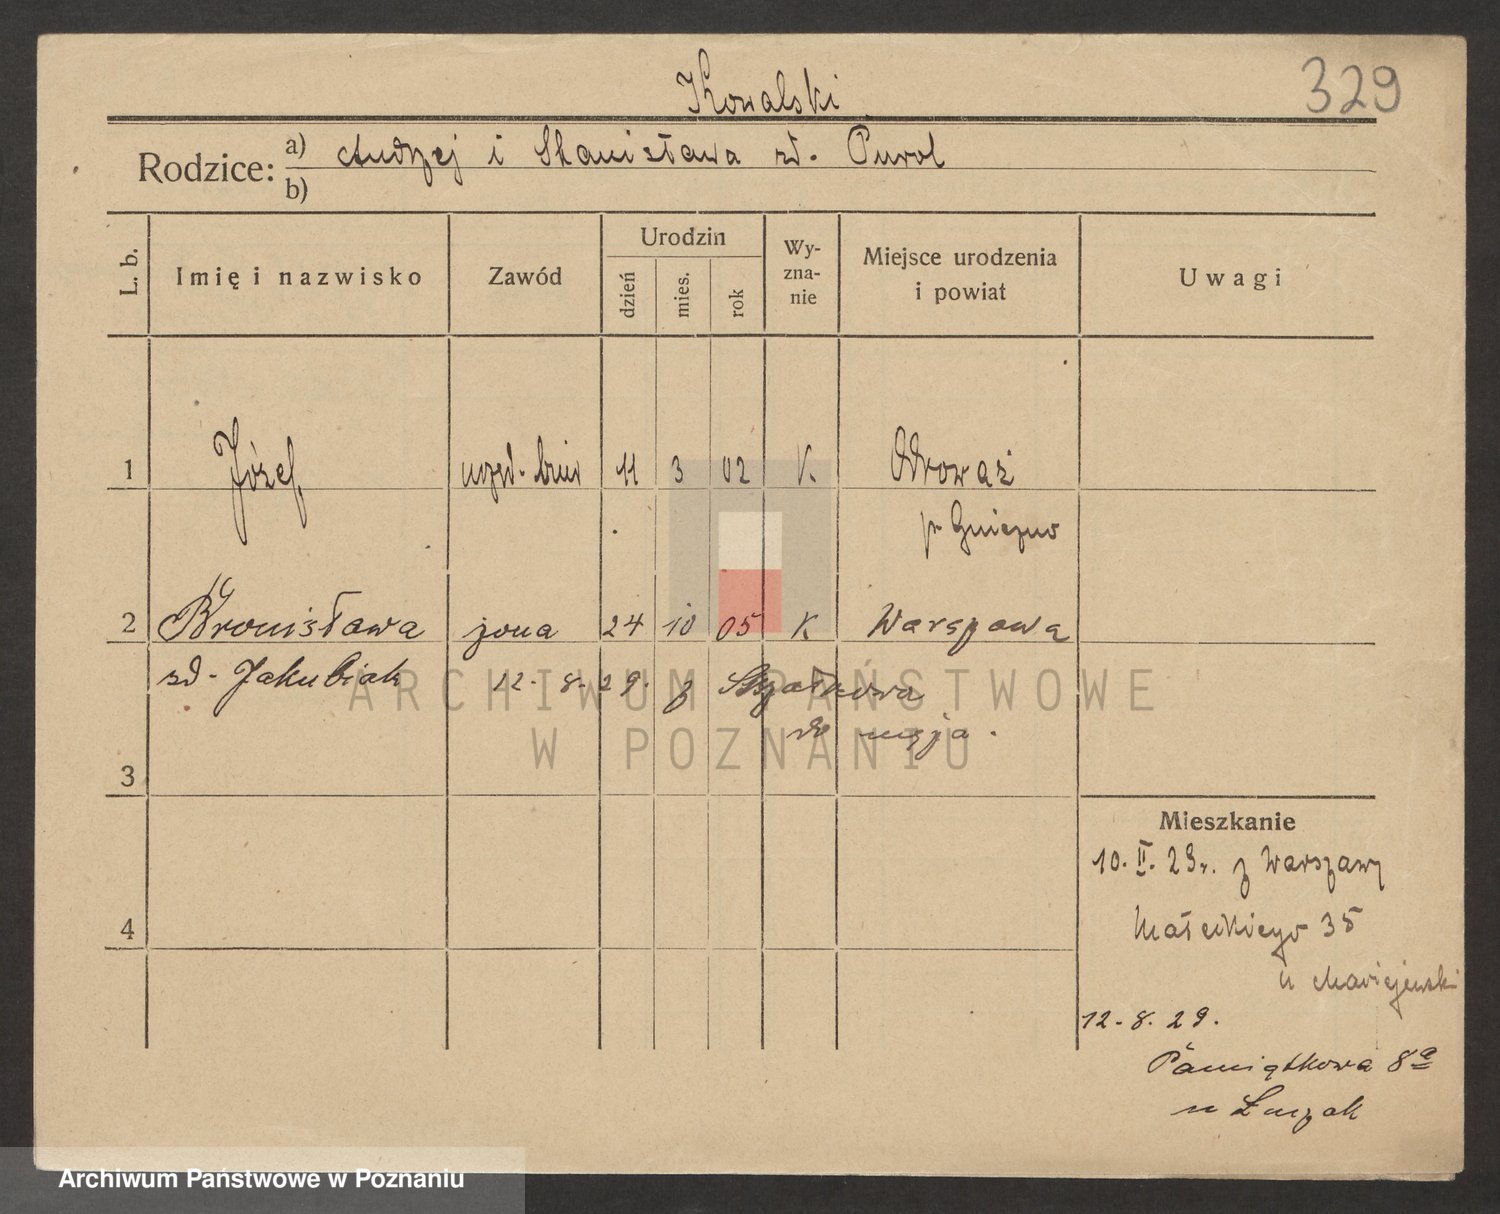 Kowalski
329
Rodzice: a) Andrzej i Stanisława zd. Purol
b)
L. b.
Imię i nazwisko
Zawód
Urodzin
dzień
mies.
rok
Wy-
zna-
nie
Miejsce urodzenia
i powiat
Uwagi
1 Józef urzęd. biur 11 3 02 K Odrowąż
p. Gniezno
2 Bronisława żona 24 10 05 K Warszawa
zd. Jakubiak 12. 8. 29. z Strzałkowa
do męża.
3
4
Mieszkanie
10. II. 29 r. z Warszawy
Małeckiego 35
u Maciejewski
12. 8. 29.
Pamiątkowa 8a
u Łuczak
ARCHIWUM PAŃSTWOWE
W POZNANIU
Archiwum Państwowe w Poznaniu